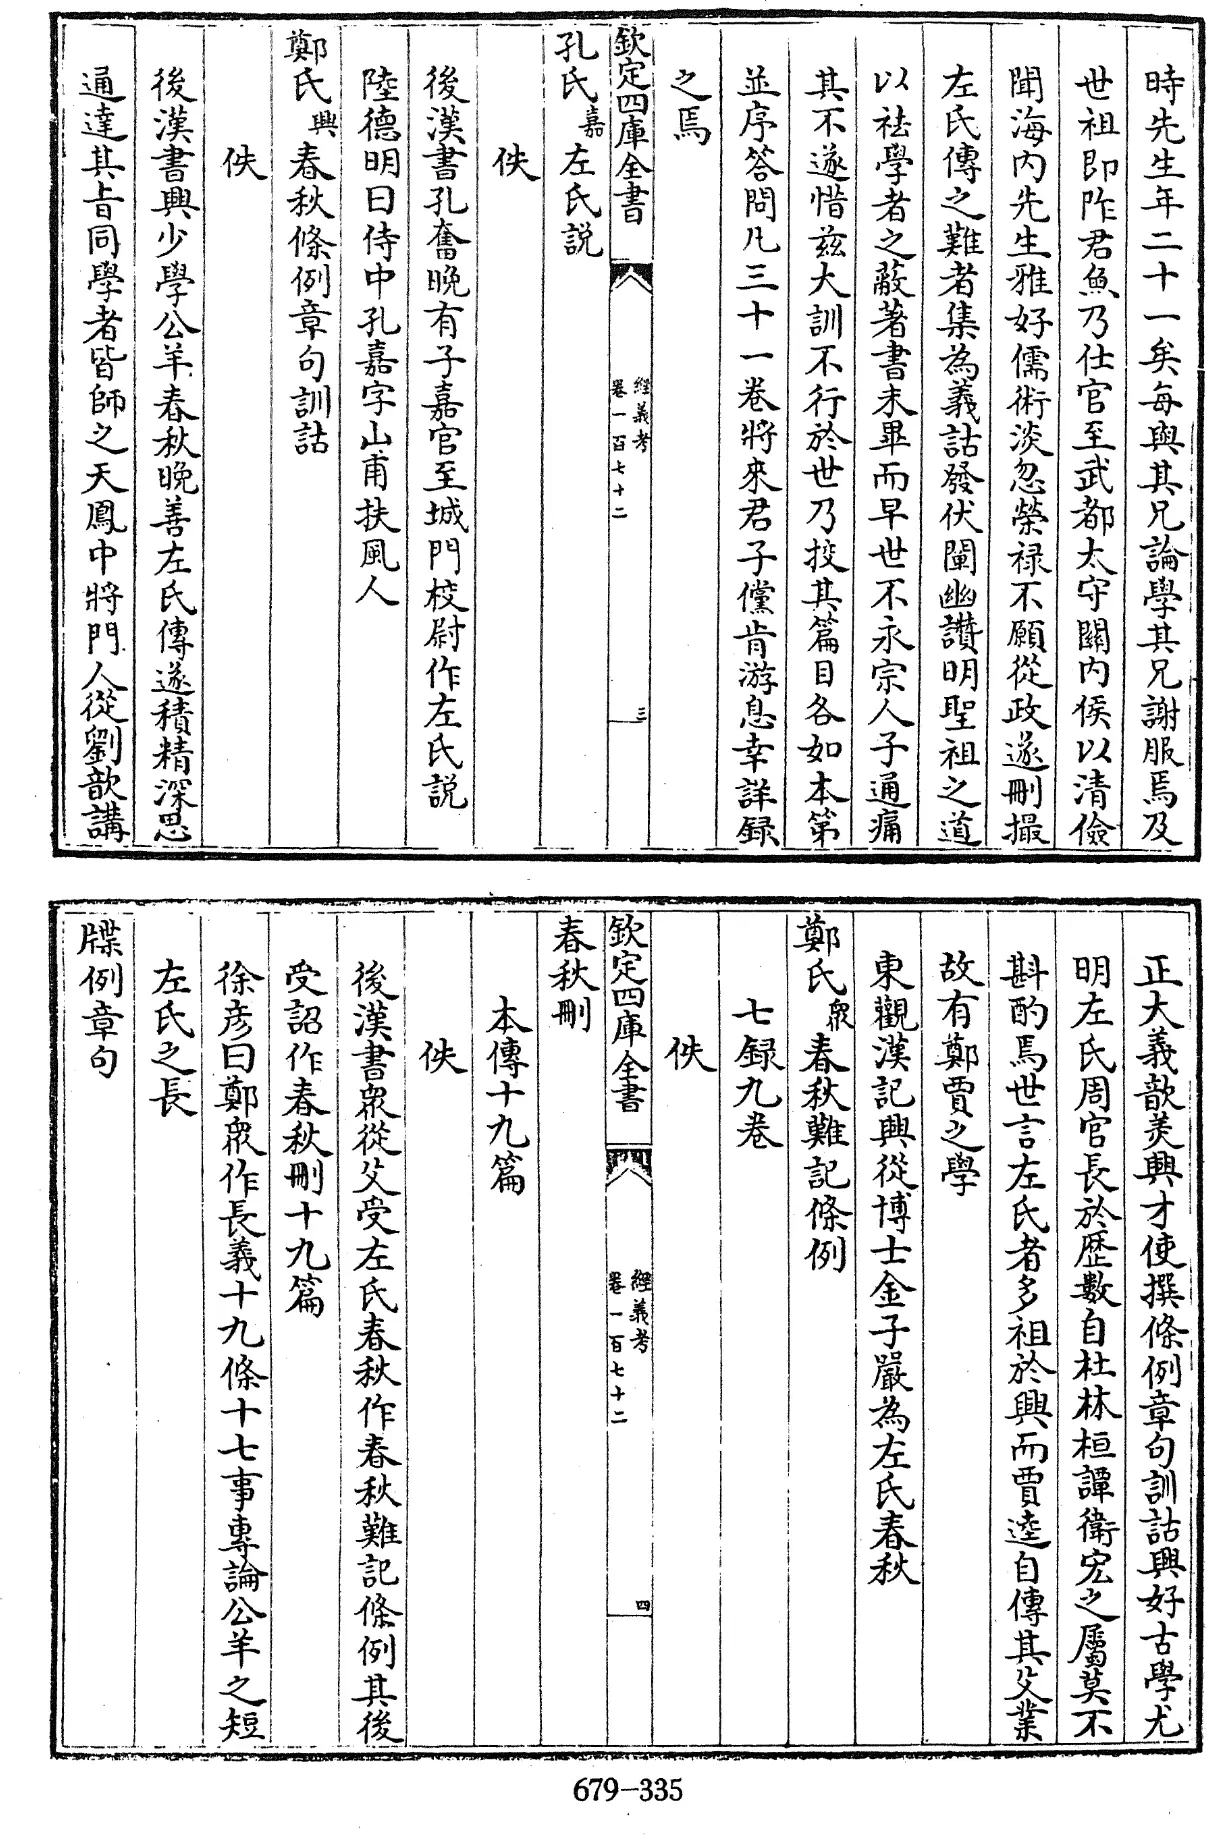 時先生年二十一矣每與其兄論學其兄謝服焉及
世祖即阼君魚乃仕官至武都太守關内侯以清儉
聞海内先生雅好儒術淡忽榮禄不願從政遂刪撮
左氏傳之難者集為義詁發伏闡幽讚明聖祖之道
以祛學者之蔽著書未畢而早世不永宗人子通痛
其不遂惜兹大訓不行於世乃挍其篇目各如本第
並序答問凡三十一卷將來君子儻肯游息幸詳録
之焉
欽定四庫全書
經義考
卷一百七十二
三
孔氏嘉左氏説
佚
後漢書孔奮晚有子嘉官至城門校尉作左氏説
陸德明曰侍中孔嘉字山甫扶風人
鄭氏興春秋條例章句訓詁
佚
後漢書興少學公羊春秋晚善左氏傳遂積精深思
通達其旨同學者皆師之天鳳中將門人從劉歆講
正大義歆美興才使撰條例章句訓詁興好古學尤
明左氏周官長於歴數自杜林桓譚衛宏之屬莫不
斟酌焉世言左氏者多祖於興而賈逵自傳其父業
故有鄭賈之學
東觀漢記興從博士金子嚴為左氏春秋
鄭氏衆春秋難記條例
七録九卷
佚
欽定四庫全書
經義考
卷一百七十二
四
春秋刪
本傳十九篇
佚
後漢書衆從父受左氏春秋作春秋難記條例其後
受詔作春秋刪十九篇
徐彦曰鄭衆作長義十九條十七事專論公羊之短
左氏之長
牒例章句
679-335